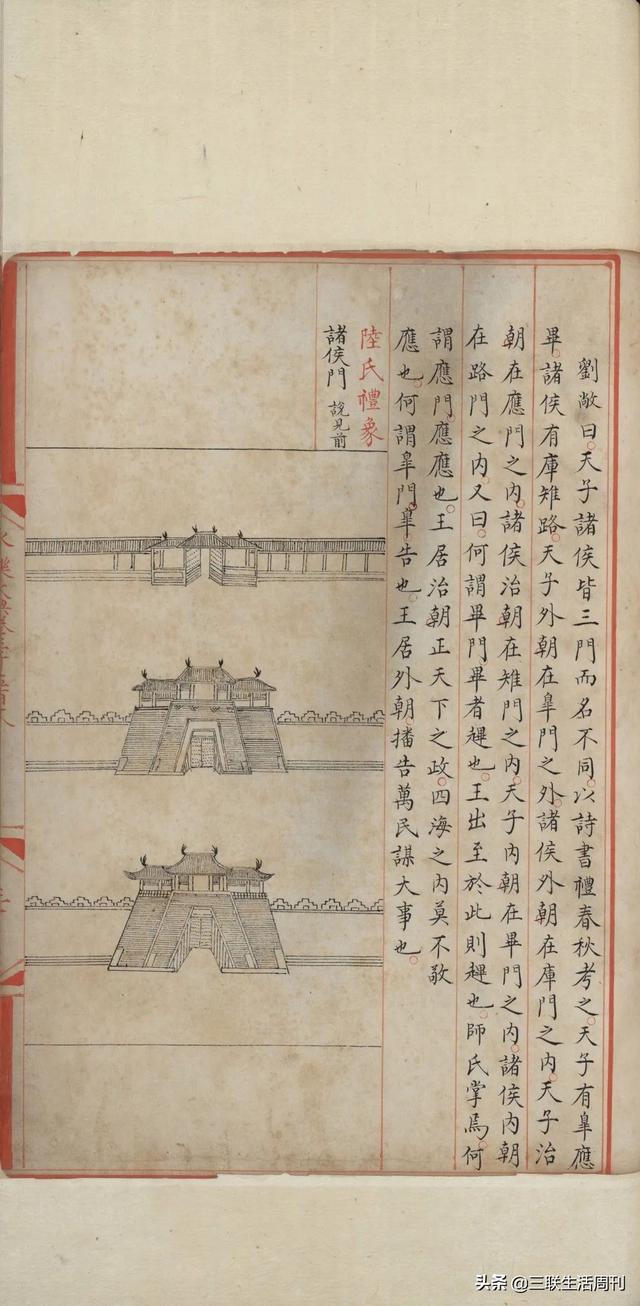 劉敞曰天子諸侯皆三門而名不同以詩書禮春秋考之天子有臯應
畢諸侯有庫雉路天子外朝在臯門之外諸侯外朝在庫門之內天子治
朝在應門之內諸侯治朝在雉門之內天子內朝在畢門之內諸侯內朝
在路門之內又曰何謂畢門畢者趩也王出至於此則趩也師氏掌焉何
謂應門應應也王居治朝正天下之政四海之內莫不敬
應也何謂臯門臯告也王居外朝播告萬民謀大事也
陸氏禮象
諸侯門 說見前
头条 @三联生活周刊